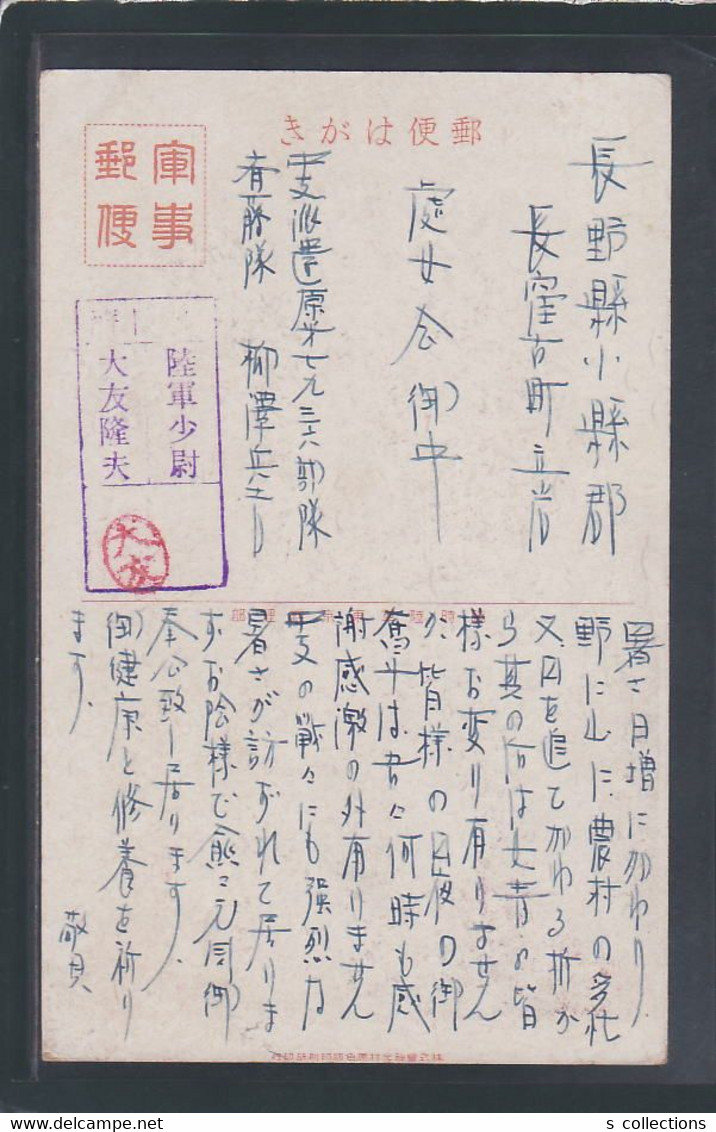 郵便はがき
軍事郵便
長野縣小縣郡
長窪古町立岩
處女会御中
中支派遣原第七九三六部隊
斉藤隊 柳澤兵士より
陸軍少尉
大友隆夫
大友
暑さ日増に加わり
野に山に農村の多忙
又日を追て加わる折か
ら其の后は女青の皆
様お変り有りません
か、皆様の日夜の御
奮斗は吾々何時も感
謝感激の外有りません
中支の戦々にも強烈な
暑さが訪ずれて居りま
すお陰様で愈々元気御
奉公致し居ります、
御健康と修養を祈り
ます、
敬具
delcampe.net
s collections